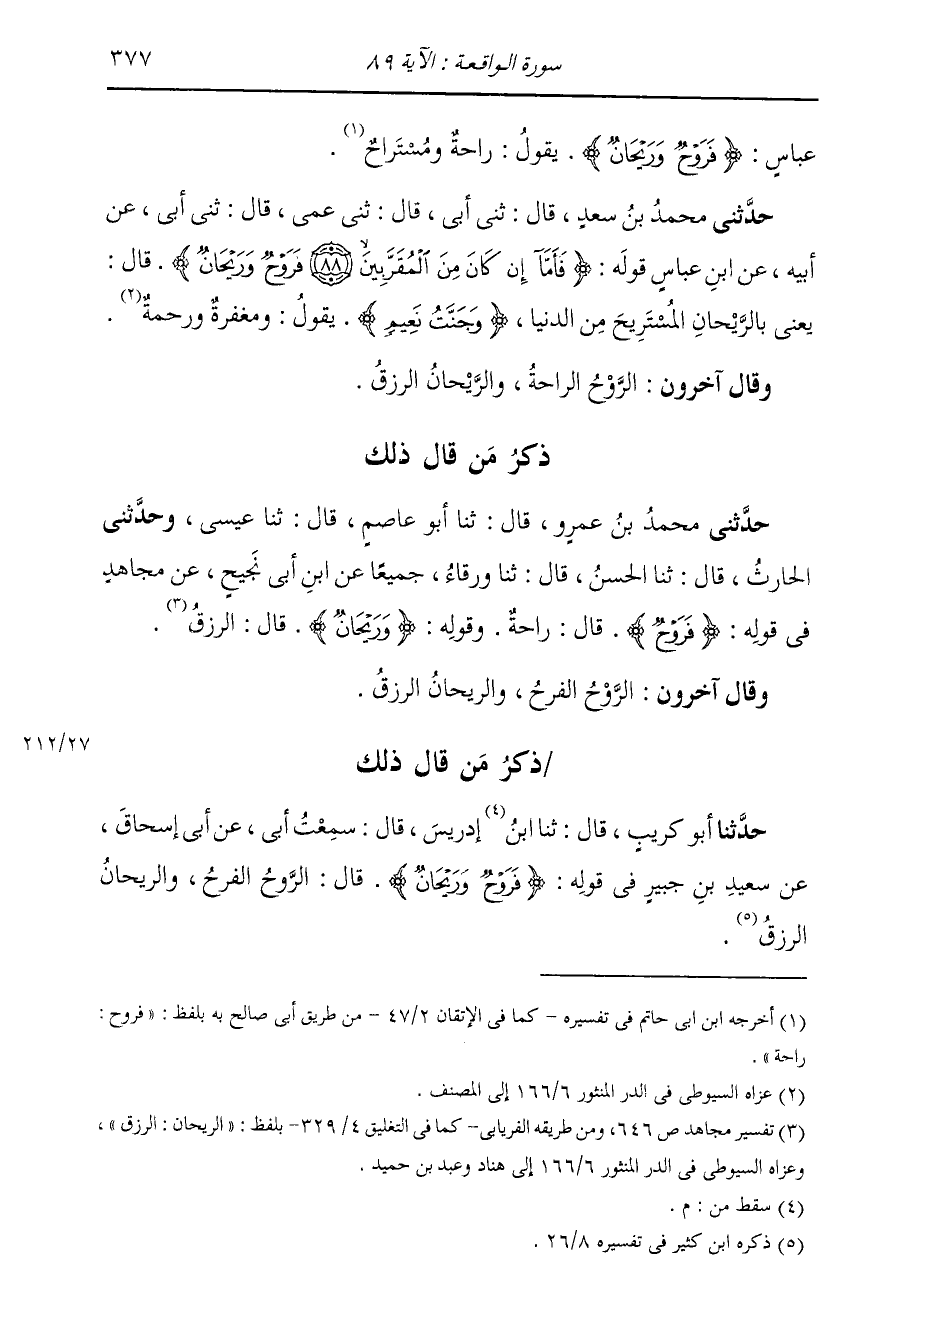 سورة الواقعة : الآية ٨٩
٣٧٧
عباسٍ : ﴿ فَرَوْحٌ وَرَيْحَانٌ ﴾ . يقولُ : راحةٌ ومُسْتَراحٌ(١) .
حدَّثنى محمدُ بنُ سعدٍ ، قال : ثنى أبى ، قال : ثنى عمى ، قال : ثنى أبى ، عن
أبيه ، عن ابنِ عباسٍ قولَه : ﴿ فَأَمَّآ إِن كَانَ مِنَ ٱلْمُقَرَّبِينَ ﴿٨٨﴾ فَرَوْحٌ وَرَيْحَانٌ ﴾ . قال :
يعنى بالرَّيْحانِ المُسْتَرِيحَ مِن الدنيا ، ﴿ وَجَنَّتُ نَعِيمٍ ﴾ . يقولُ : ومغفرةٌ ورحمةٌ(٢) .
وقال آخرون : الرَّوْحُ الراحةُ ، والرَّيْحانُ الرزقُ .
ذكرُ مَن قال ذلك
حدَّثنى محمدُ بنُ عمرٍو ، قال : ثنا أبو عاصمٍ ، قال : ثنا عيسى ، وحدَّثنى
الحارثُ ، قال : ثنا الحسنُ ، قال : ثنا ورقاءُ ، جميعًا عن ابنِ أبى نَجيحٍ ، عن مجاهدٍ
فى قولِه : ﴿ فَرَوْحٌ ﴾ . قال : راحةٌ . وقولِه : ﴿ وَرَيْحَانٌ ﴾ . قال : الرزقُ(٣) .
وقال آخرون : الرَّوْحُ الفرحُ ، والريحانُ الرزقُ .
/ذكرُ مَن قال ذلك
٢١٢/٢٧
حدَّثنا أبو كريبٍ ، قال : ثنا ابنُ(٤) إدريسَ ، قال : سمِعْتُ أبى ، عن أبى إسحاقَ ،
عن سعيدِ بنِ جبيرٍ فى قولِه : ﴿ فَرَوْحٌ وَرَيْحَانٌ ﴾ . قال : الرَّوحُ الفرحُ ، والريحانُ
الرزقُ(٥) .
(١) أخرجه ابن ابى حاتم فى تفسيره - كما فى الإتقان ٤٧/٢ - من طريق أبى صالح به بلفظ : « فروح :
راحة » .
(٢) عزاه السيوطى فى الدر المنثور ١٦٦/٦ إلى المصنف .
(٣) تفسير مجاهد ص ٦٤٦، ومن طريقه الفريابى- كما فى التغليق ٤/ ٣٢٩- بلفظ : « الريحان : الرزق » ،
وعزاه السيوطى فى الدر المنثور ١٦٦/٦ إلى هناد وعبد بن حميد .
(٤) سقط من : م .
(٥) ذكره ابن كثير فى تفسيره ٢٦/٨ .